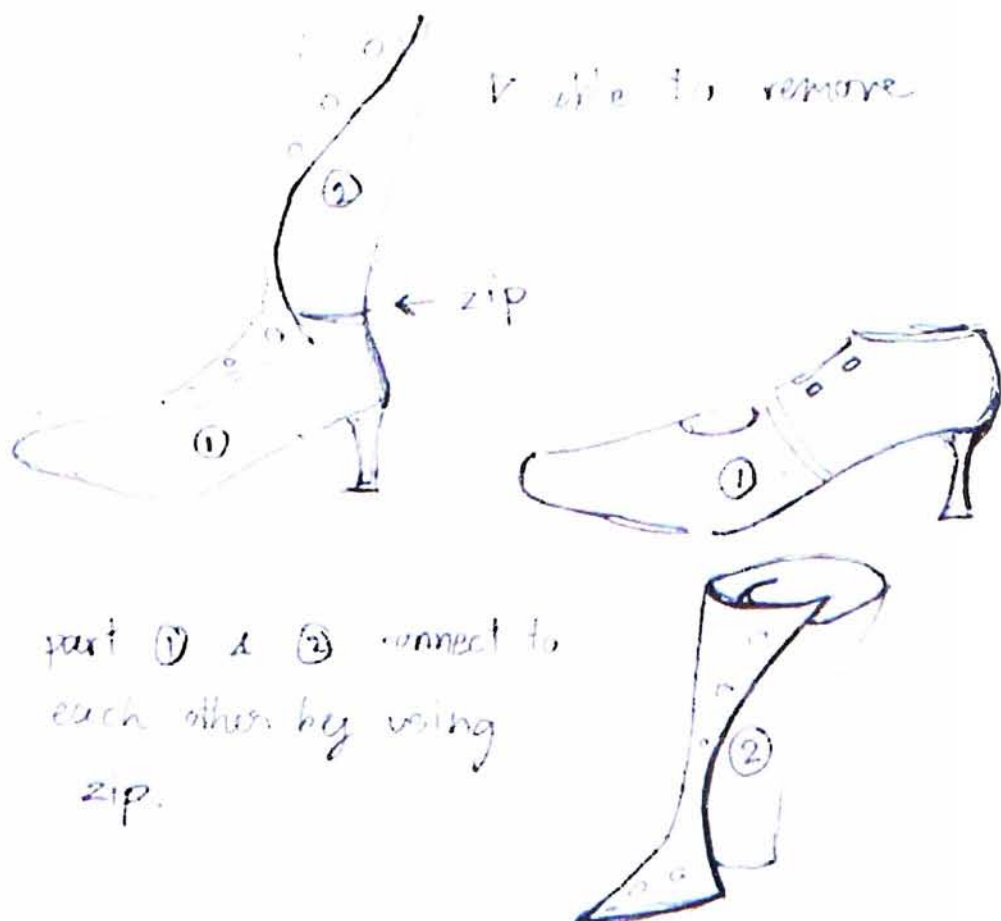 able to remove
②
← zip
①
①
part ① & ② connect to
each other by using
zip.
②